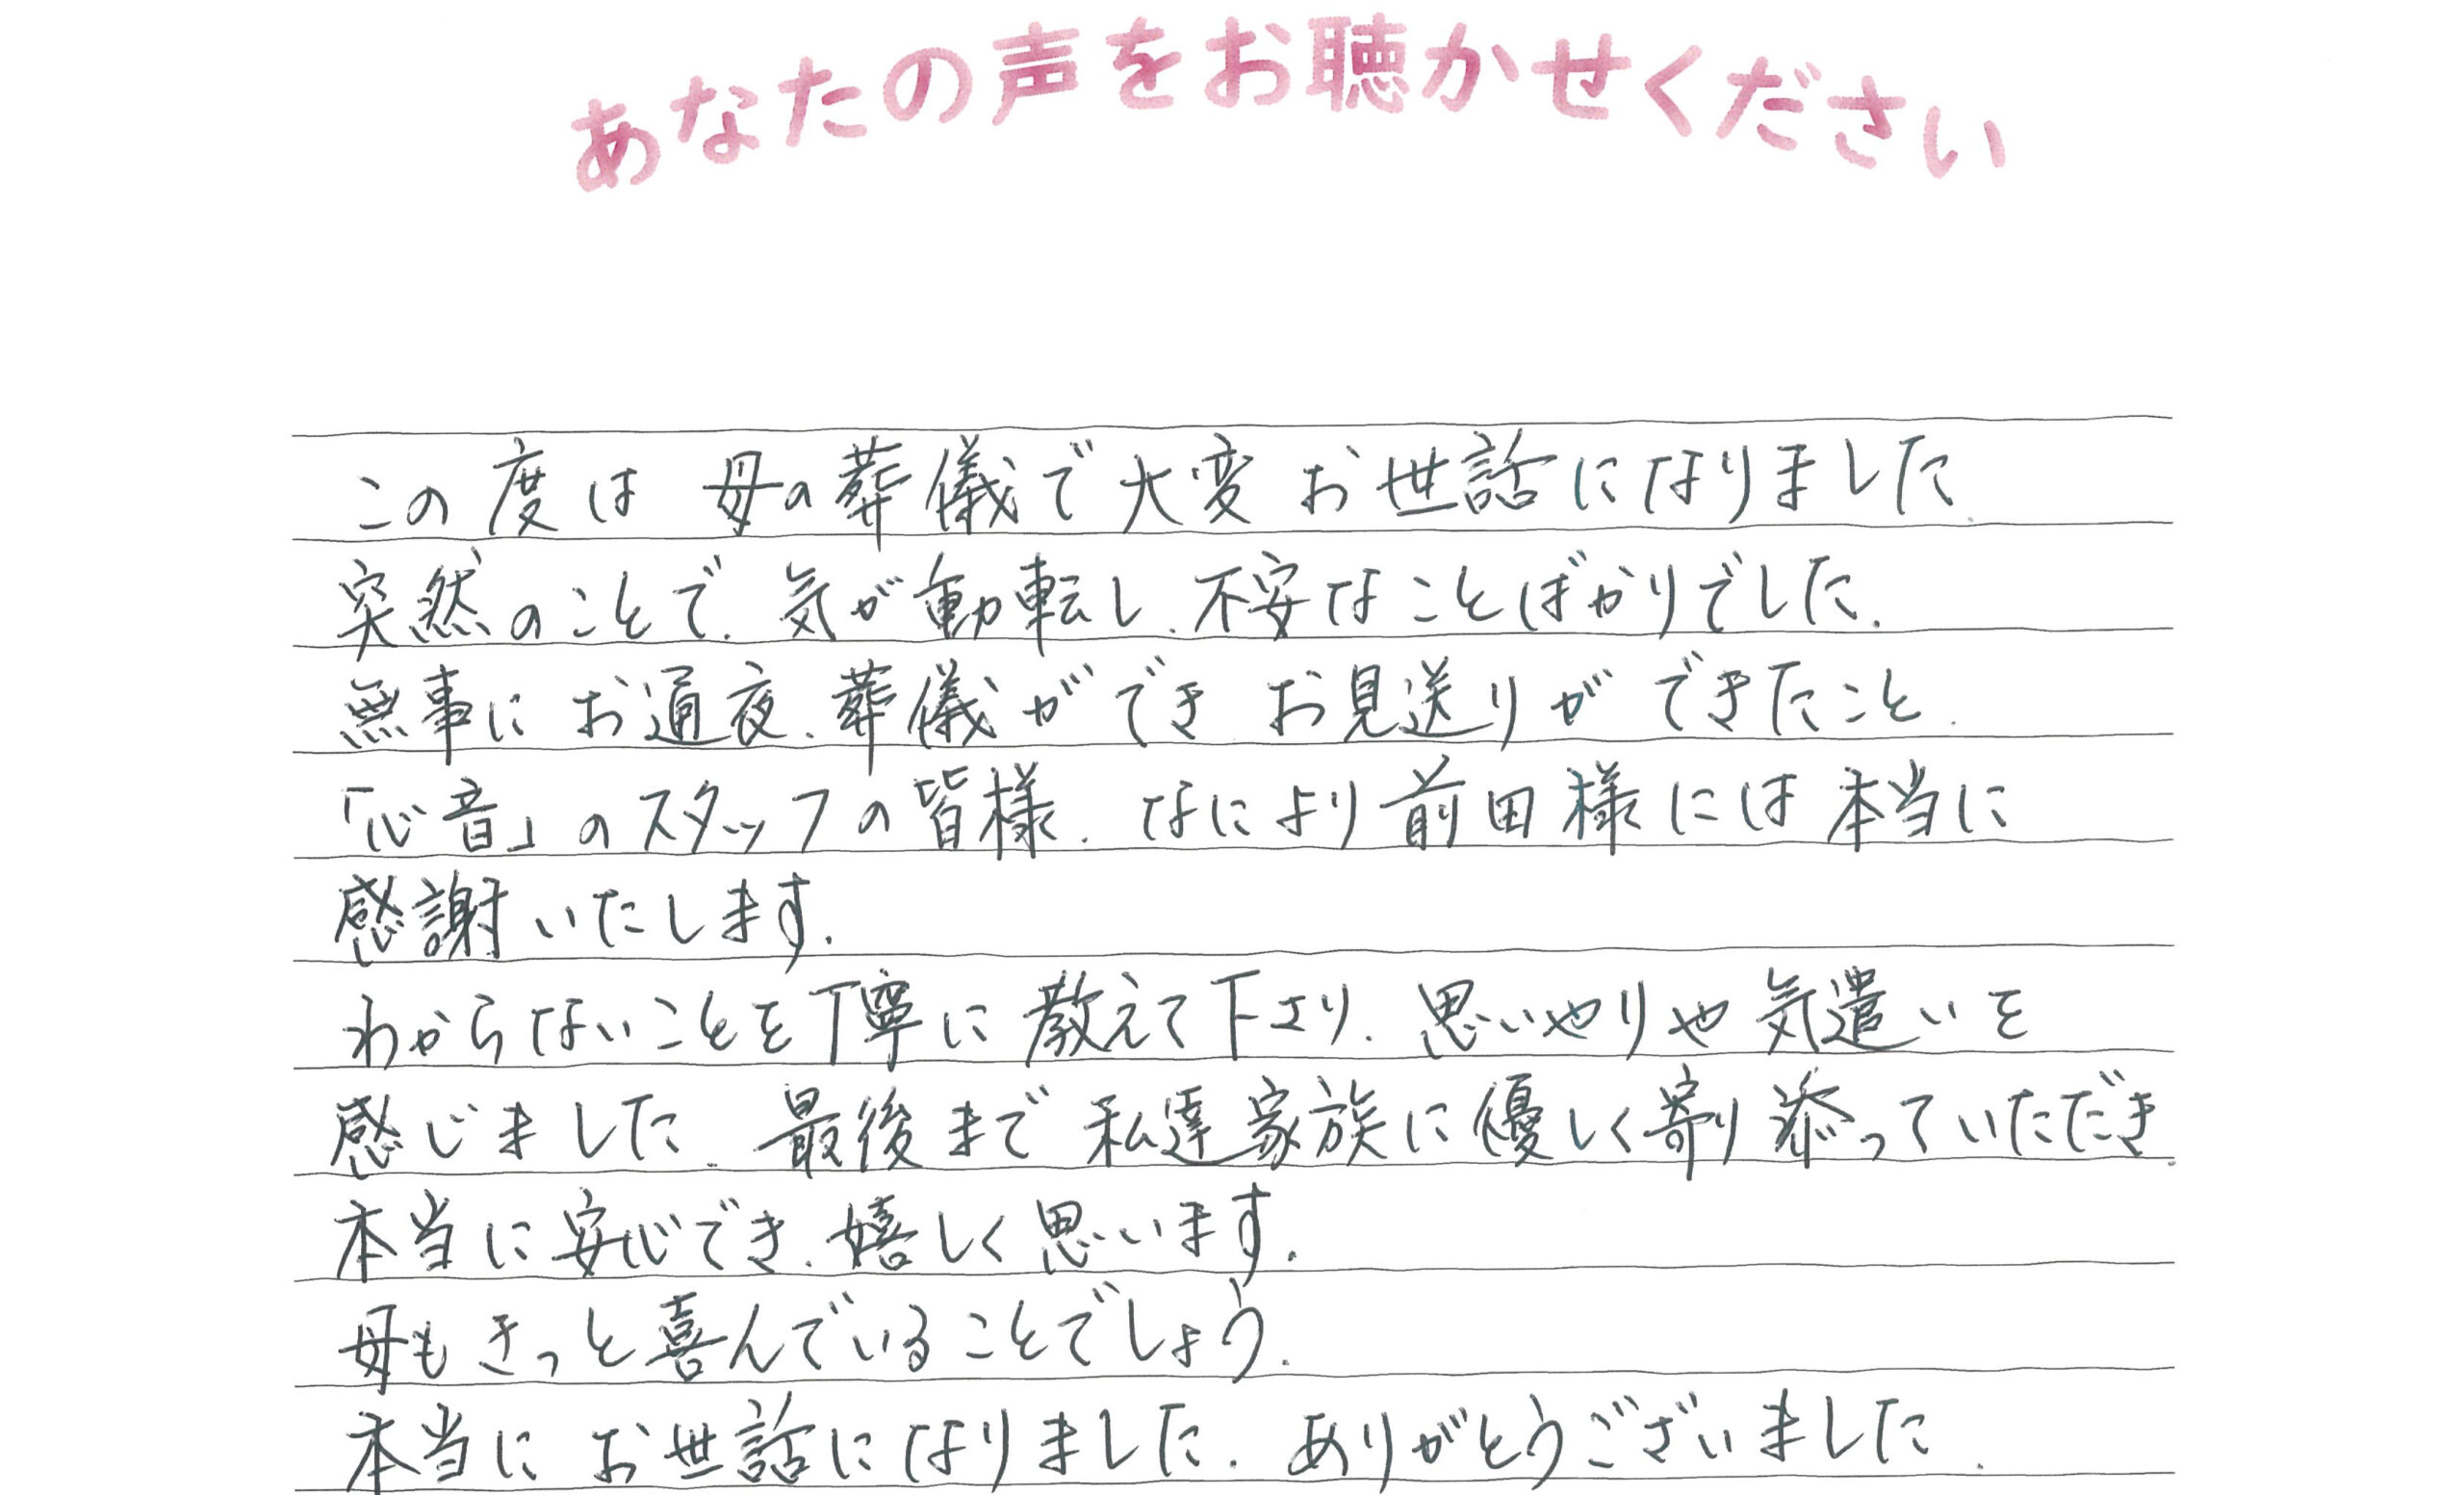 あなたの声をお聴かせください
この度は 母の葬儀で大変 お世話になりました.
突然のことで. 気が動転し. 不安なことばかりでした.
無事に お通夜. 葬儀ができ お見送りが できたこと.
「心音」のスタッフの皆様. なにより前田様には本当に
感謝いたします.
わからないことを丁寧に教えて下さり. 思いやりや気遣いを
感じました. 最後まで私達家族に優しく寄り添っていただき.
本当に安心でき. 嬉しく思います.
母もきっと喜んでいることでしょう.
本当に お世話になりました. ありがとうございました.